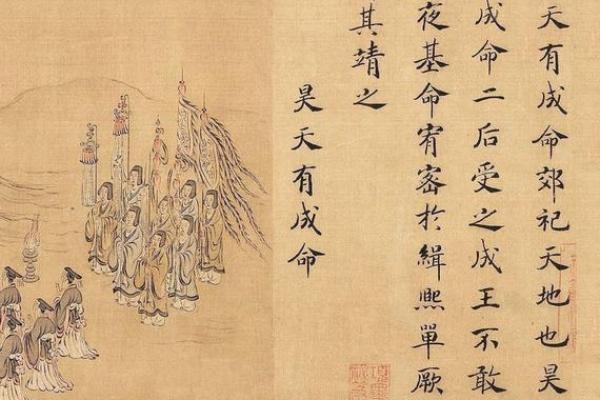 天有成命郊祀天地也昊
成命二后受之成王不敢
夜基命宥密於緝熙單厥
其靖之
昊天有成命